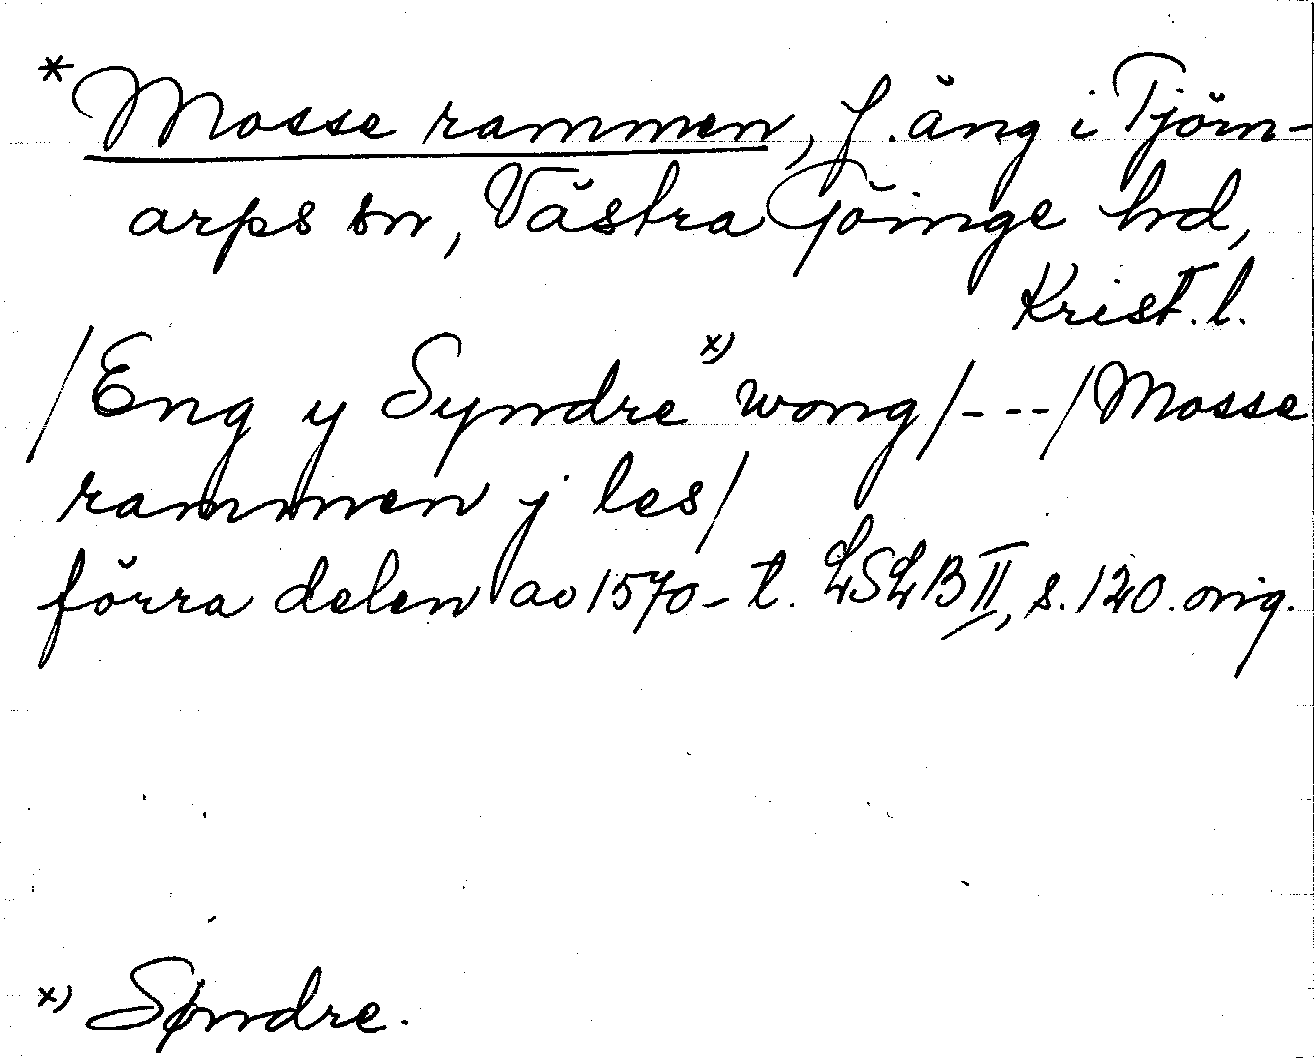 * Mosse rammen, f. äng i Tjörn-
arps sn, Västra Göinge hd,
Krist. l.
/Eng y Syndre x) wong/---/Mosse
rammen j les/
förra delen av 1570-t. LSLB II, s. 120. orig.
x) Søndre.